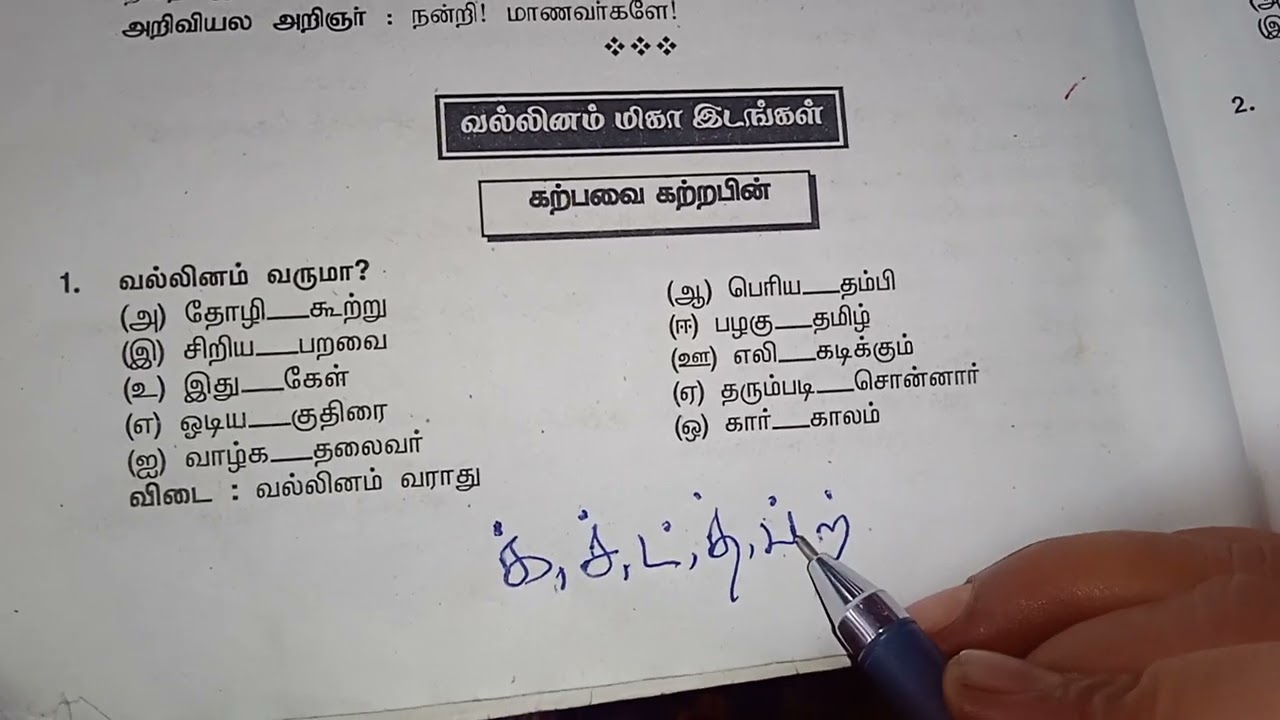 அறிவியல அறிஞர் : நன்றி! மாணவர்களே!
வல்லினம் மிகா இடங்கள்
கற்பவை கற்றபின்
1. வல்லினம் வருமா?
(அ) தோழி___கூற்று
(ஆ) பெரிய___தம்பி
(இ) சிறிய___பறவை
(ஈ) பழகு___தமிழ்
(உ) இது___கேள்
(ஊ) எலி___கடிக்கும்
(எ) ஓடிய___குதிரை
(ஏ) தரும்படி___சொன்னார்
(ஐ) வாழ்க___தலைவர்
(ஒ) கார்___காலம்
விடை : வல்லினம் வராது
க், ச், ட், த், ப் ற்
2.